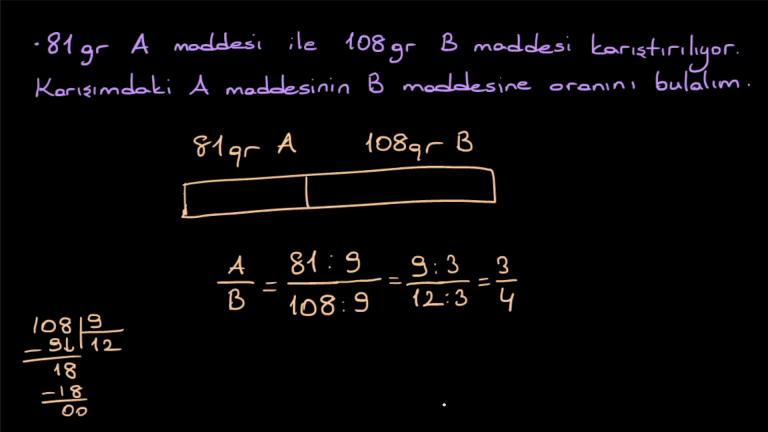 · 81 gr A maddesi ile 108 gr B maddesi karıştırılıyor.
Karışımdaki A maddesinin B maddesine oranını bulalım.
81 gr A 108 gr B
A/B = 81:9/108:9 = 9:3/12:3 = 3/4
108 | 9
- 9↓ | 12
18
-18
00